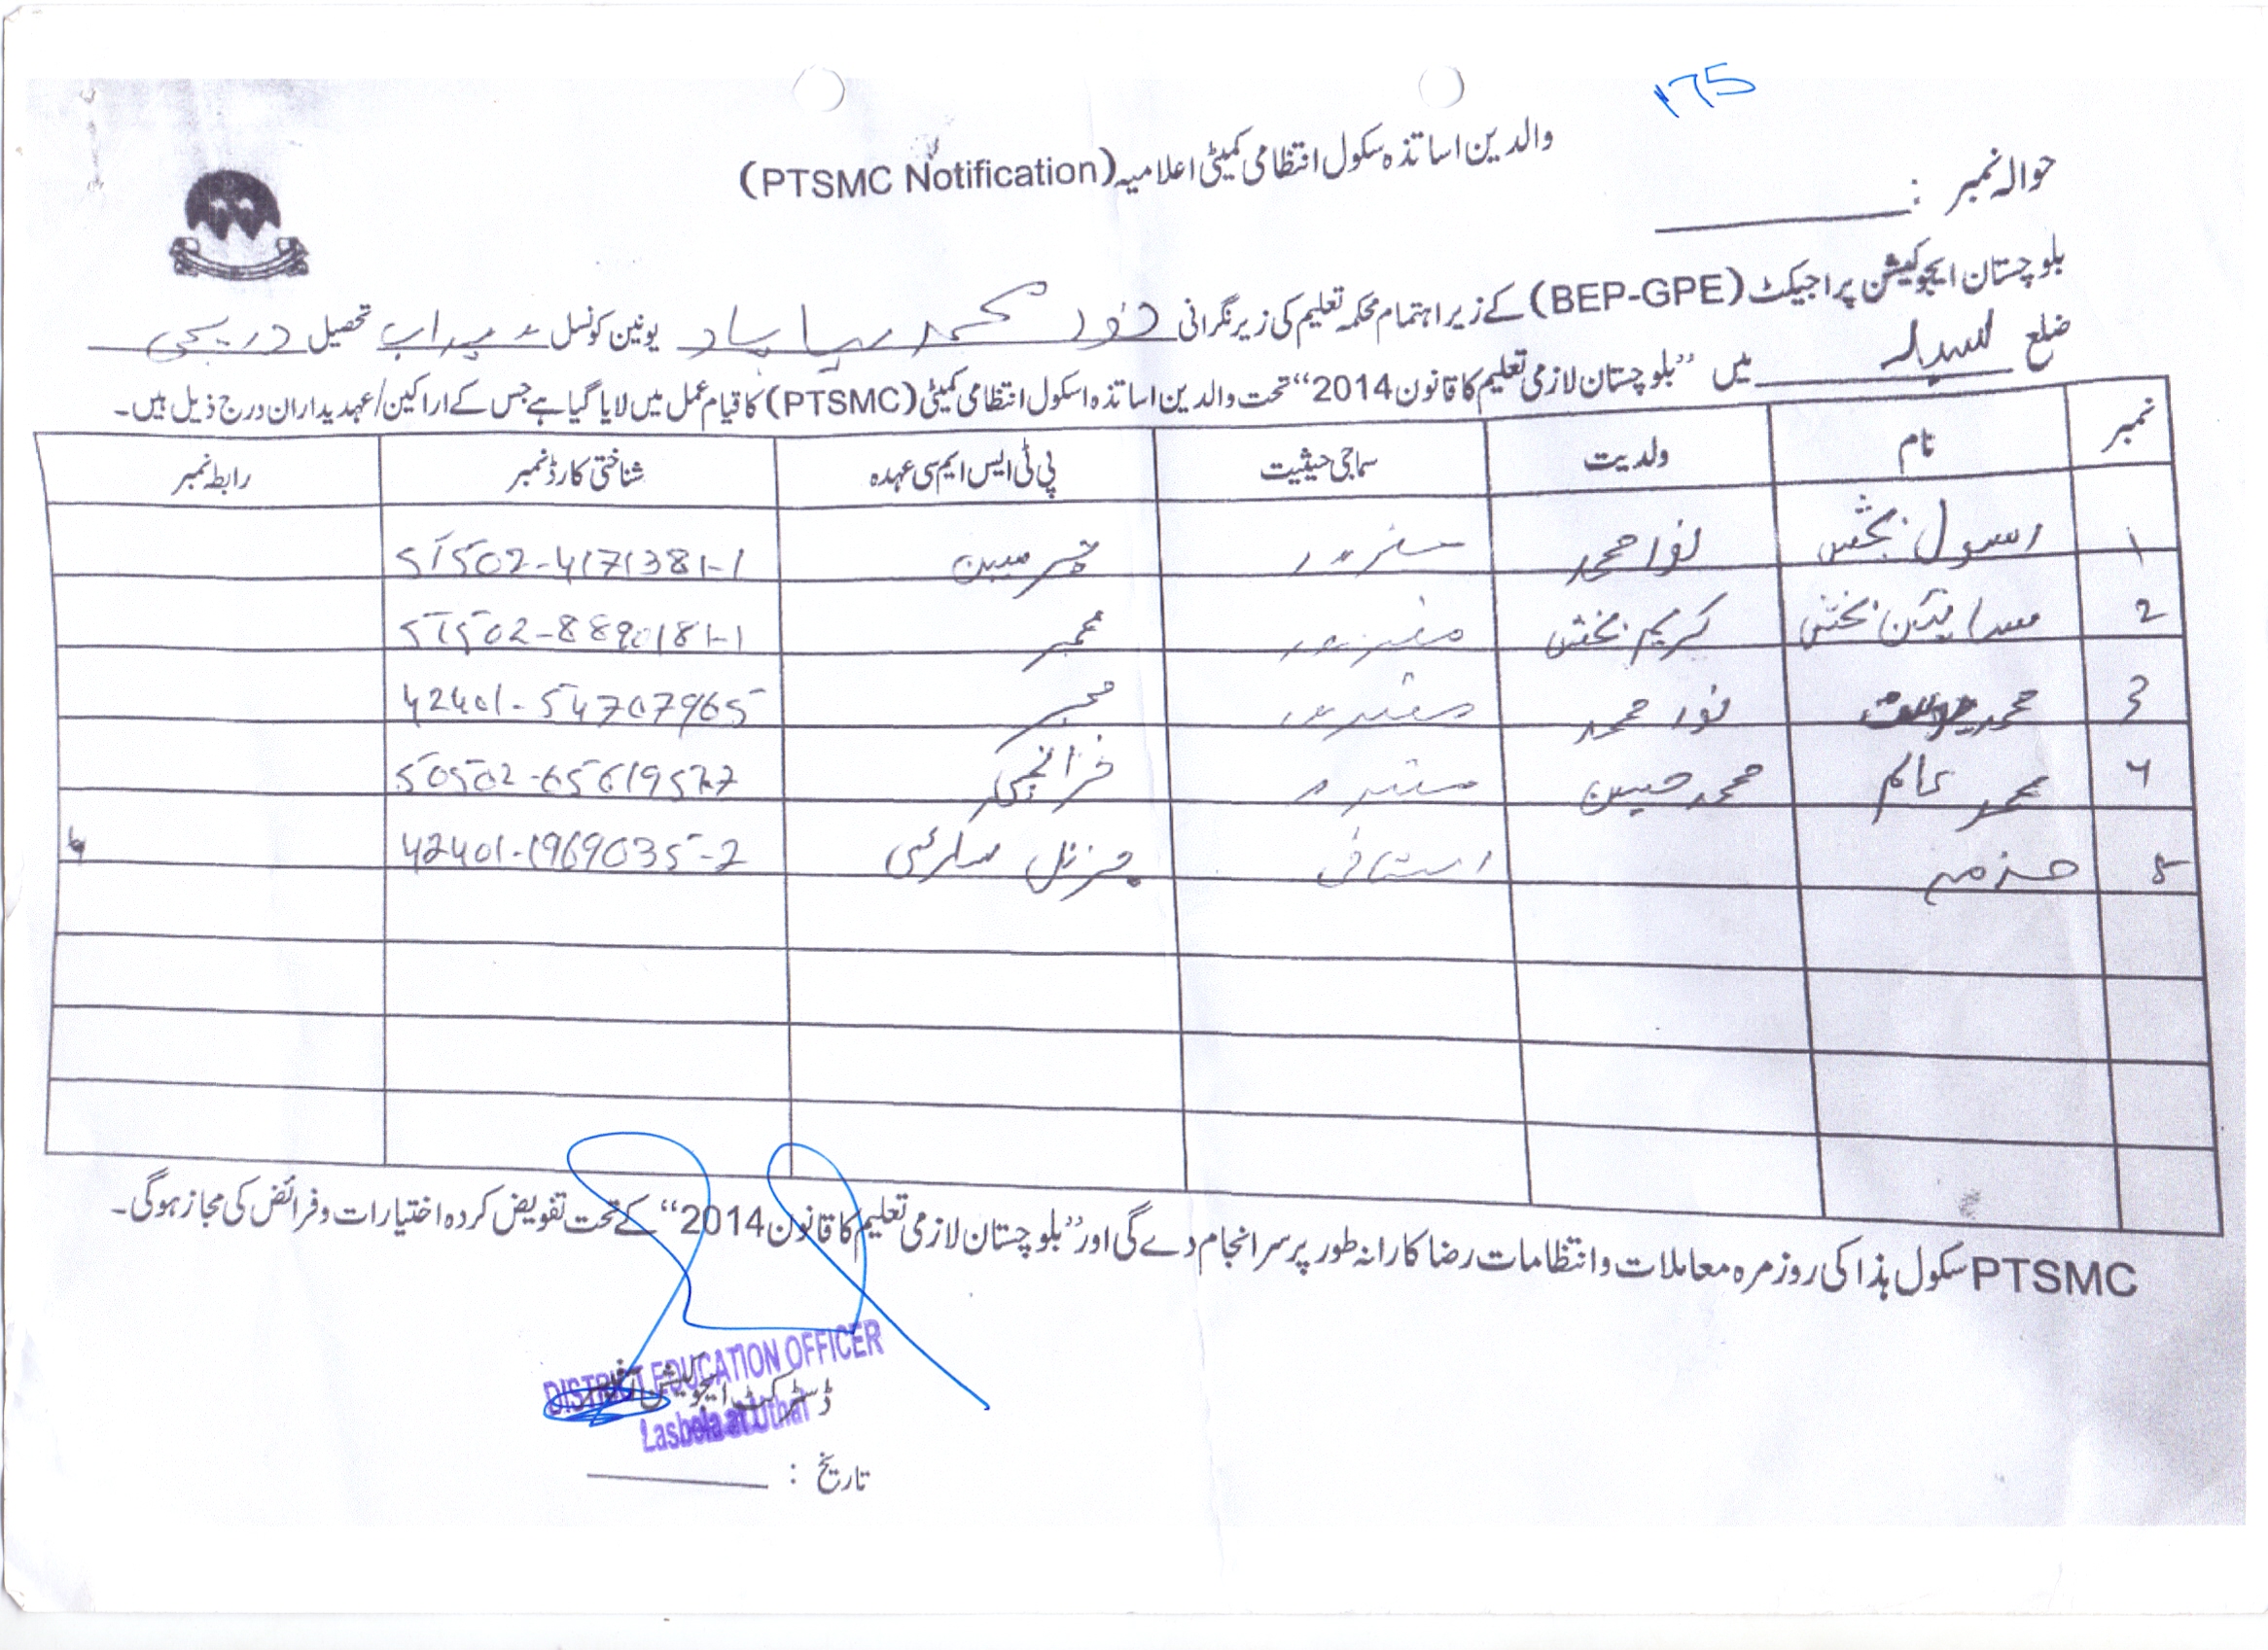 175
والدین اساتذہ سکول انتظامی کمیٹی اعلامیہ (PTSMC Notification)
حوالہ نمبر :
بلوچستان ایجوکیشن پراجیکٹ (BEP-GPE) کے زیر اہتمام محکمہ تعلیم کی زیر نگرانی نور محمد یونین کونسل تحصیل دریجی
ضلع لسبیلہ میں ”بلوچستان لازمی تعلیم کا قانون 2014“ تحت والدین اساتذہ اسکول انتظامی کمیٹی (PTSMC) کا قیام عمل میں لایا گیا ہے جس کے اراکین/عہدیداران درج ذیل ہیں۔
نمبر نام ولدیت سماجی حیثیت پی ٹی ایس ایم سی عہدہ شناختی کارڈ نمبر رابطہ نمبر
1 رسول بخش نور محمد چیرمین 51502-4171381-1
2 بخش کریم بخش ممبر 51502-8890181-1
3 محمد نور محمد ممبر 42401-54707965
4 محمد عالم محمد حسین خزانچی
5 استانی جنرل 42401-1969035-2
PTSMC سکول ہذا کی روزمرہ معاملات و انتظامات رضا کارانہ طور پر سرانجام دے گی اور ”بلوچستان لازمی تعلیم کا قانون 2014“ کے تحت تفویض کردہ اختیارات و فرائض کی مجاز ہوگی۔
DISTRICT EDUCATION OFFICER
ڈسٹرکٹ ایجوکیشن آفیسر
Lasbela at Uthal
تاریخ :